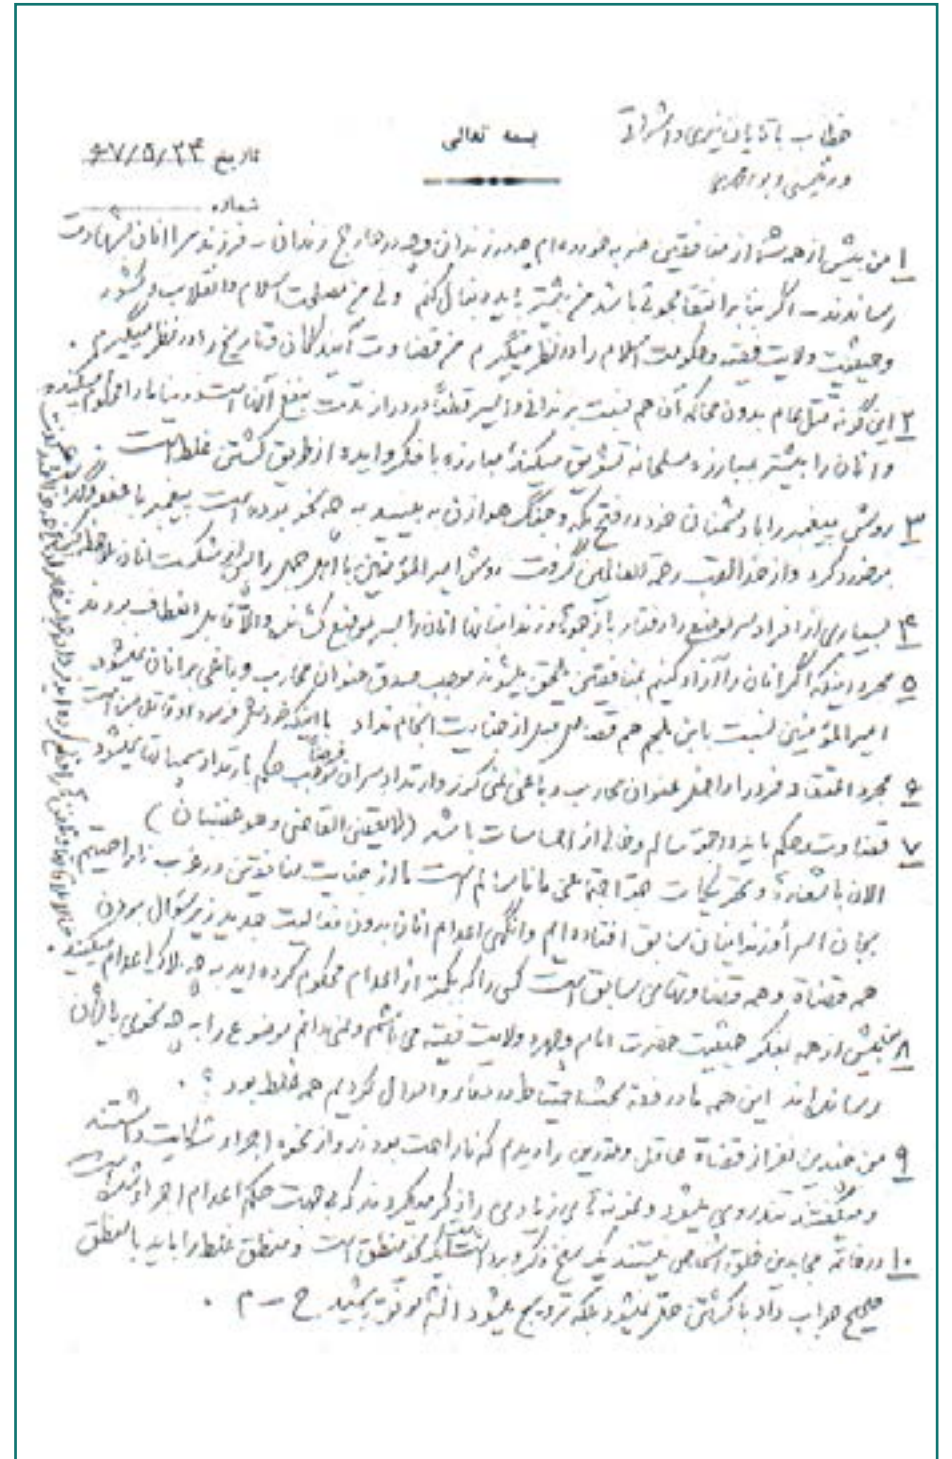 بسمه تعالی
خطاب به آقایان نیری و اشراقی
و رئیسی و پورمحمدی
تاریخ ۶۷/۵/۲۴
شماره
۱ من بیش از همه شما از منافقین ضربه خورده‌ام چه در زندان و چه در خارج زندان ـ فرزند مرا آنان بشهادت
رساندند ـ اگر بنا بر انتقامجوئی باشد من بیشتر باید دنبال کنم ولی من مصلحت اسلام و انقلاب و کشور
و حیثیت ولایت فقیه و حکومت اسلام را در نظر میگیرم من قضاوت آیندگان و تاریخ را در نظر میگیرم .
۲ این گونه قتل عام بدون محاکمه آن هم نسبت بزندانی و اسیر قطعا در دراز مدت بنفع آنها است و دنیا ما را محکوم میکند
و آنان را بیشتر بمبارزه مسلحانه تشویق میکند مبارزه با فکر و ایده از طریق کشتن غلط است .
۳ روش پیغمبر را با دشمنان خود در فتح مکه و جنگ هوازن ببینید به چه نحو بوده است پیغمبر با عفو و گذشت
برخورد کرد و از خدا لقب رحمة للعالمین گرفت روش امیرالمؤمنین با اهل جمل را پس از شکست آنان ملاحظه کنید
۴ بسیاری از افراد سر موضع را رفتار بازجوها و زندانبانان آنان را بسر موضع کشانده والا قابل انعطاف بودند
۵ مجرد اینکه اگر آنان را آزاد کنیم بمنافقین ملحق میشوند موجب صدق عنوان محارب و باغی بر آنان نمیشود
امیرالمؤمنین نسبت بابن ملجم هم قصاص قبل از جنایت انجام نداد با اینکه خودش فرمود او قاتل من است
۶ مجرد اعتقاد فرد را داخل عنوان محارب و باغی نمی کند و ارتداد سران فرضا موجب حکم بارتداد سمپاتها نمیشود
۷ قضاوت و حکم باید در جو سالم و خالی از احساسات باشد (لایقضی القاضی و هو غضبان)
الان با شعارها و تحریکات جو اجتماعی ما ناسالم است ما از جنایت منافقین در غرب ناراحتیم
بجان اسرا و زندانیان سابق افتاده ایم وانگهی اعدام آنان بدون فعالیت جدید زیر سؤال بردن
همه قضاة و همه قضاوتهای سابق است کسی را که بکمتر از اعدام محکوم کرده اید به چه ملاک اعدام میکنید .
حالا
۸ من بیش از همه بفکر حیثیت حضرت امام و چهره ولایت فقیه می باشم و نمی دانم موضوع را به چه نحوی بایشان
رسانده اند این همه ما در فقه بحث احتیاط در دماء و اموال کردیم همه غلط بود ؟ .
۹ من چندین نفر از قضاة عاقل و متدین را دیدم که ناراحت بودند و از نحوه اجراء شکایت داشتند
و میگفتند تندروی میشود و نمونه های زیادی را ذکر میکردند که بی جهت حکم اعدام اجرا شده است
۱۰ در خاتمه مجاهدین خلق اشخاص نیستند یک سنخ فکر و برداشت است یک نحو منطق است و منطق غلط را باید با منطق
صحیح جواب داد با کشتن حل نمیشود بلکه ترویج میشود انشاءالله موفق باشید ح ـ م .